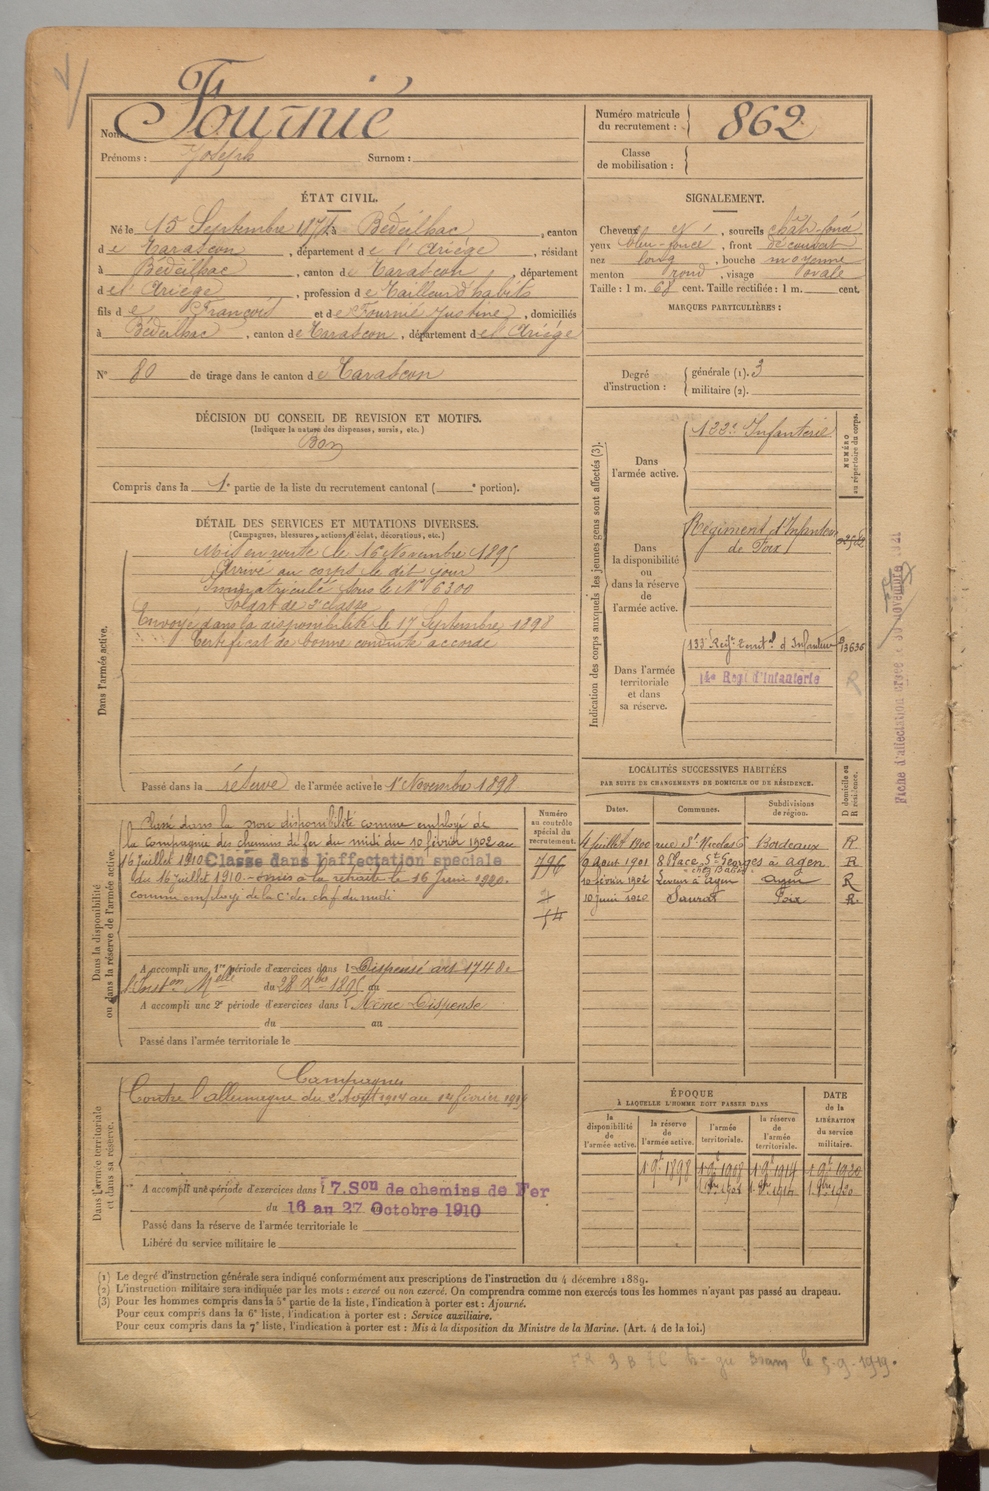 Nom : Fournié
Prénoms : Joseph Surnom :
Numéro matricule du recrutement : 862
Classe de mobilisation :
ÉTAT CIVIL.
Né le 15 Septembre 1874 à Bédeilhac, canton
de Tarascon, département de l'Ariège, résidant
à Bédeilhac, canton de Tarascon, département
de l'Ariège, profession de Tailleur d'habits
fils de François et de Fournié Justine, domiciliés
à Bédeilhac, canton de Tarascon, département de l'Ariège
N° 80 de tirage dans le canton de Tarascon
SIGNALEMENT.
Cheveux id, sourcils chât-foncé
yeux bleu-foncé, front découvert
nez long, bouche moyenne
menton rond, visage ovale
Taille : 1 m. 68 cent. Taille rectifiée : 1 m. cent.
MARQUES PARTICULIÈRES :
Degré d'instruction : générale (1). 3
militaire (2).
DÉCISION DU CONSEIL DE REVISION ET MOTIFS.
(Indiquer la nature des dispenses, sursis, etc.)
Bon
Compris dans la 1e partie de la liste du recrutement cantonal ( e portion).
DÉTAIL DES SERVICES ET MUTATIONS DIVERSES.
(Campagnes, blessures, actions d'éclat, décorations, etc.)
Dans l'armée active.
Mis en route le 16 Novembre 1895
Arrivé au corps le dit jour
Immatriculé sous le N° 6300
Soldat de 2e classe
Envoyé dans la disponibilité le 17 Septembre 1898
Certificat de bonne conduite accordé
Passé dans la réserve de l'armée active le 1er Novembre 1898
Indication des corps auxquels les jeunes gens sont affectés (3).
NUMÉRO au répertoire du corps.
Dans l'armée active.
122e Infanterie
Dans la disponibilité ou dans la réserve de l'armée active.
Régiment d'Infanterie
de Foix
Dans l'armée territoriale et dans sa réserve.
133e Regt Territal d'Infanterie
14e Regt d'Infanterie
R
Fiche d'affectation
Dans la disponibilité ou dans la réserve de l'armée active.
Numéro au contrôle spécial du recrutement.
Passé dans la non disponibilité comme employé de
la compagnie des chemins de fer du midi du 10 février 1902 au
16 Juillet 1910 Classé dans l'affectation spéciale
du 16 juillet 1910. - Admis à la retraite le 16 Juin 1920.
comme employé de la Cie des ch. f. du midi
796
A accompli une 1re période d'exercices dans l Dispensé art. 174 de
l'Inston Melle du 28 Xbre 1895 au
A accompli une 2e période d'exercices dans l Même Dispense
du au
Passé dans l'armée territoriale le
LOCALITÉS SUCCESSIVES HABITÉES
PAR SUITE DE CHANGEMENTS DE DOMICILE OU DE RÉSIDENCE.
Dates. Communes. Subdivisions de région. D domicile ou R résidence.
4 Juillet 1900 rue St Nicolas 6 Bordeaux R
9 Aout 1901 8 Place St Georges à Agen R
10 février 1902 à Agen Agen R
10 Juin 1920 Saurat Foix R
Dans l'armée territoriale et dans sa réserve.
Campagnes
Contre l'allemagne du 2 Août 1914 au 14 février 1919
A accompli une période d'exercices dans l 7.Son de chemins de Fer
du 16 au 27 Octobre 1910
Passé dans la réserve de l'armée territoriale le
Libéré du service militaire le
ÉPOQUE
À LAQUELLE L'HOMME DOIT PASSER DANS
la disponibilité de l'armée active. la réserve de l'armée active. l'armée territoriale. la réserve de l'armée territoriale. DATE de la LIBÉRATION du service militaire.
1 9bre 1898 1 9bre 1908 1 9bre 1914 1 9bre 1920
(1) Le degré d'instruction générale sera indiqué conformément aux prescriptions de l'instruction du 4 décembre 1889.
(2) L'instruction militaire sera indiquée par les mots : exercé ou non exercé. On comprendra comme non exercés tous les hommes n'ayant pas passé au drapeau.
(3) Pour les hommes compris dans la 5e partie de la liste, l'indication à porter est : Ajourné.
Pour ceux compris dans la 6e liste, l'indication à porter est : Service auxiliaire.
Pour ceux compris dans la 7e liste, l'indication à porter est : Mis à la disposition du Ministre de la Marine. (Art. 4 de la loi.)
Bram le 5-9-1919.